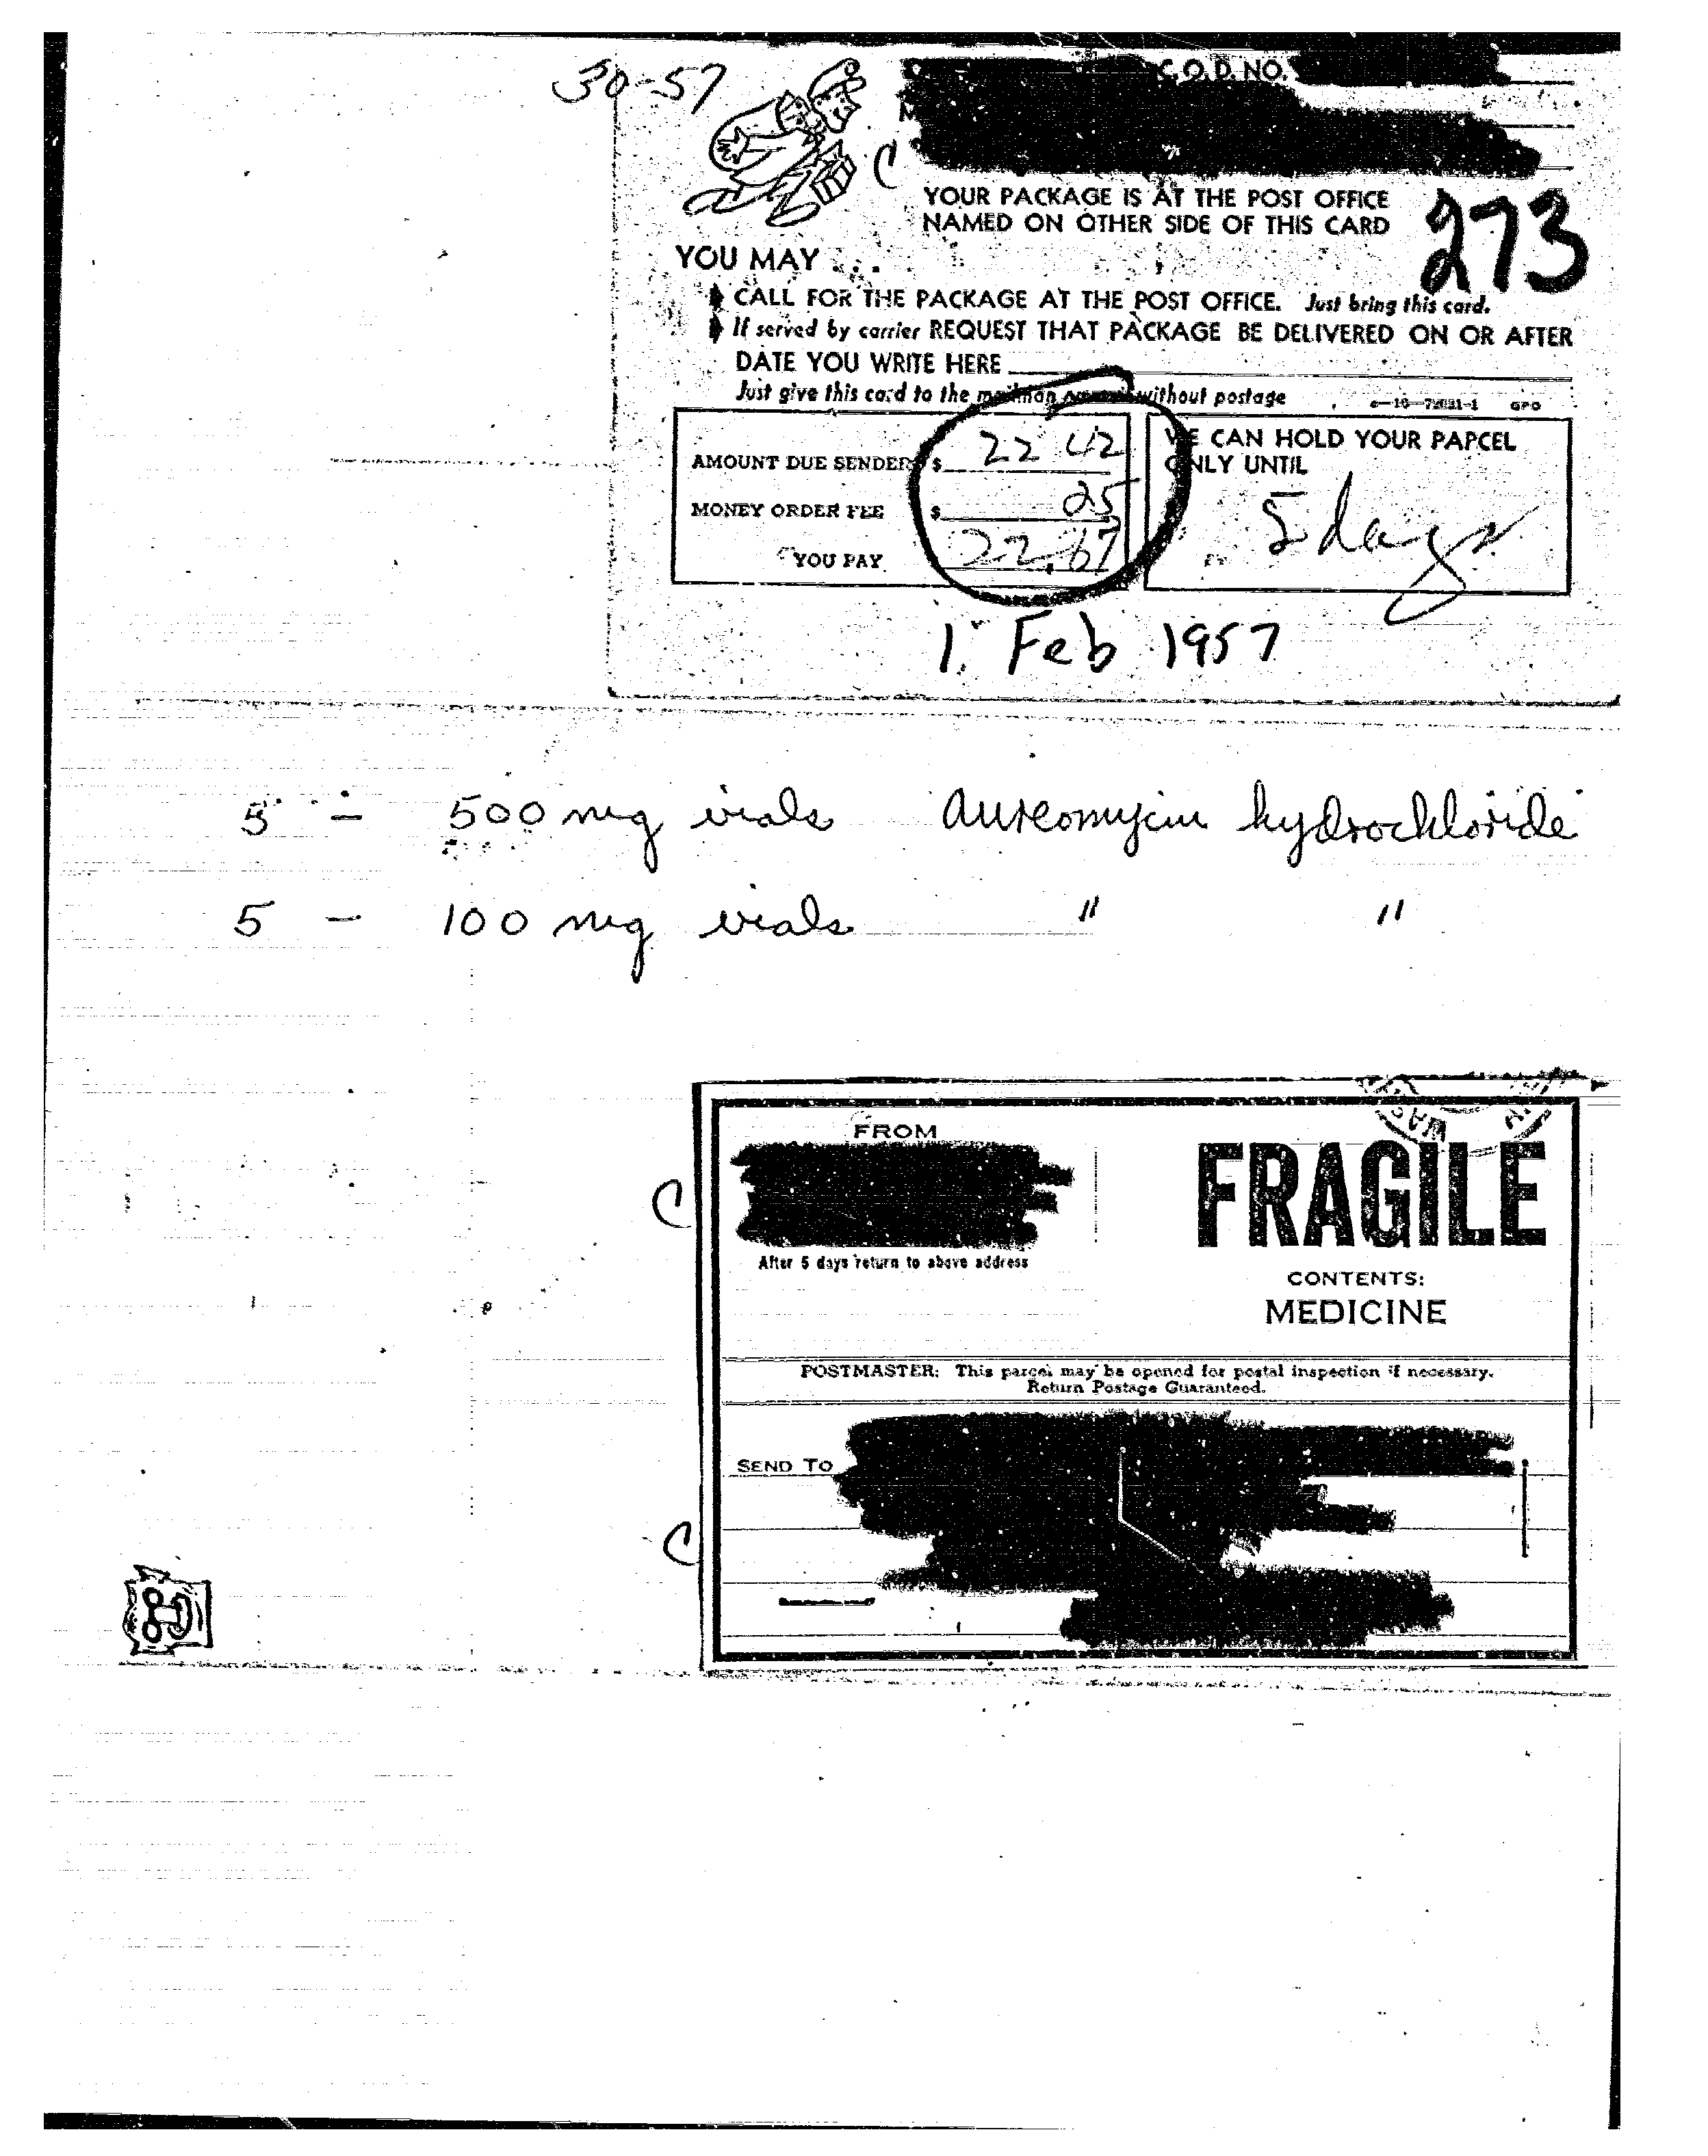 30-57
C.O.D. NO.
C
YOUR PACKAGE IS AT THE POST OFFICE
NAMED ON OTHER SIDE OF THIS CARD
273
YOU MAY . . .
CALL FOR THE PACKAGE AT THE POST OFFICE. Just bring this card.
If served by carrier REQUEST THAT PACKAGE BE DELIVERED ON OR AFTER
DATE YOU WRITE HERE
Just give this card to the mailman without postage
GPO
AMOUNT DUE SENDER $ 22 42
MONEY ORDER FEE $ 25
YOU PAY 22.67
WE CAN HOLD YOUR PARCEL
ONLY UNTIL
5 days
1. Feb 1957
5 - 500 mg vials Aureomycin hydrochloride
5 - 100 mg vials " "
FROM
C
After 5 days return to above address
FRAGILE
CONTENTS:
MEDICINE
POSTMASTER: This parcel may be opened for postal inspection if necessary.
Return Postage Guaranteed.
SEND TO
C